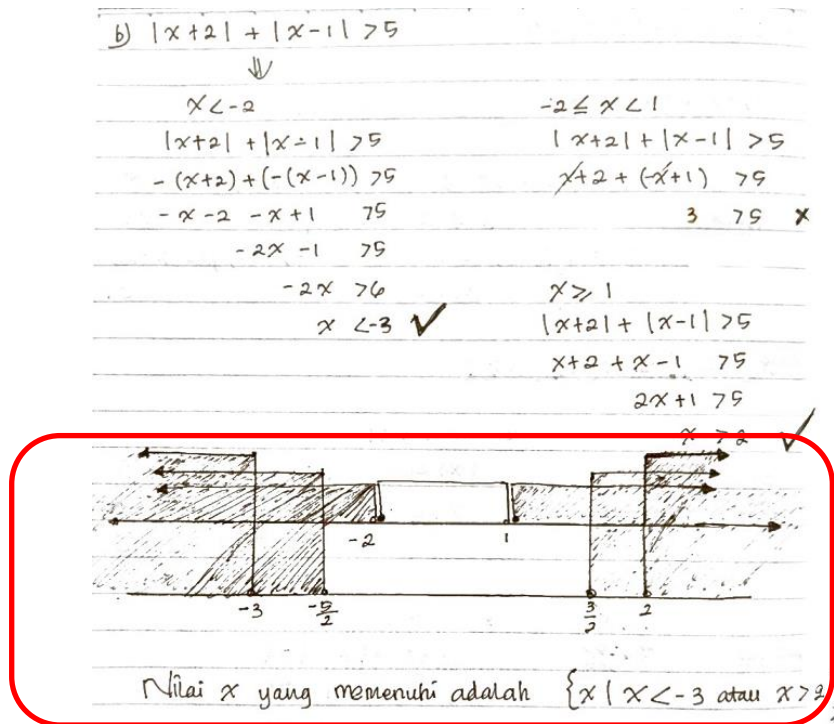 b) |x+2| + |x-1| >5
⇓
x<-2
|x+2| + |x-1| >5
-(x+2)+(-(x-1)) >5
-x-2 -x+1 >5
-2x -1 >5
-2x >6
x <-3 ✓
-2≤ x <1
|x+2| + |x-1| >5
x+2 + (-x+1) >5
3 >5 x
x ≥ 1
|x+2| + |x-1| >5
x+2 + x-1 >5
2x+1 >5
x >2 ✓
-2 1
-3 -5/2 3/2 2
Nilai x yang memenuhi adalah {x | x<-3 atau x>2